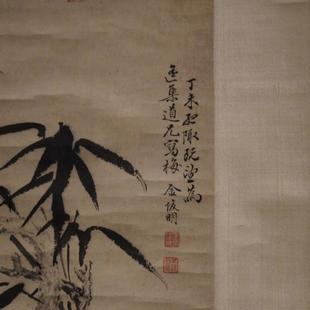 丁未孟陬既望為
色集道兄寫梅 金俊明